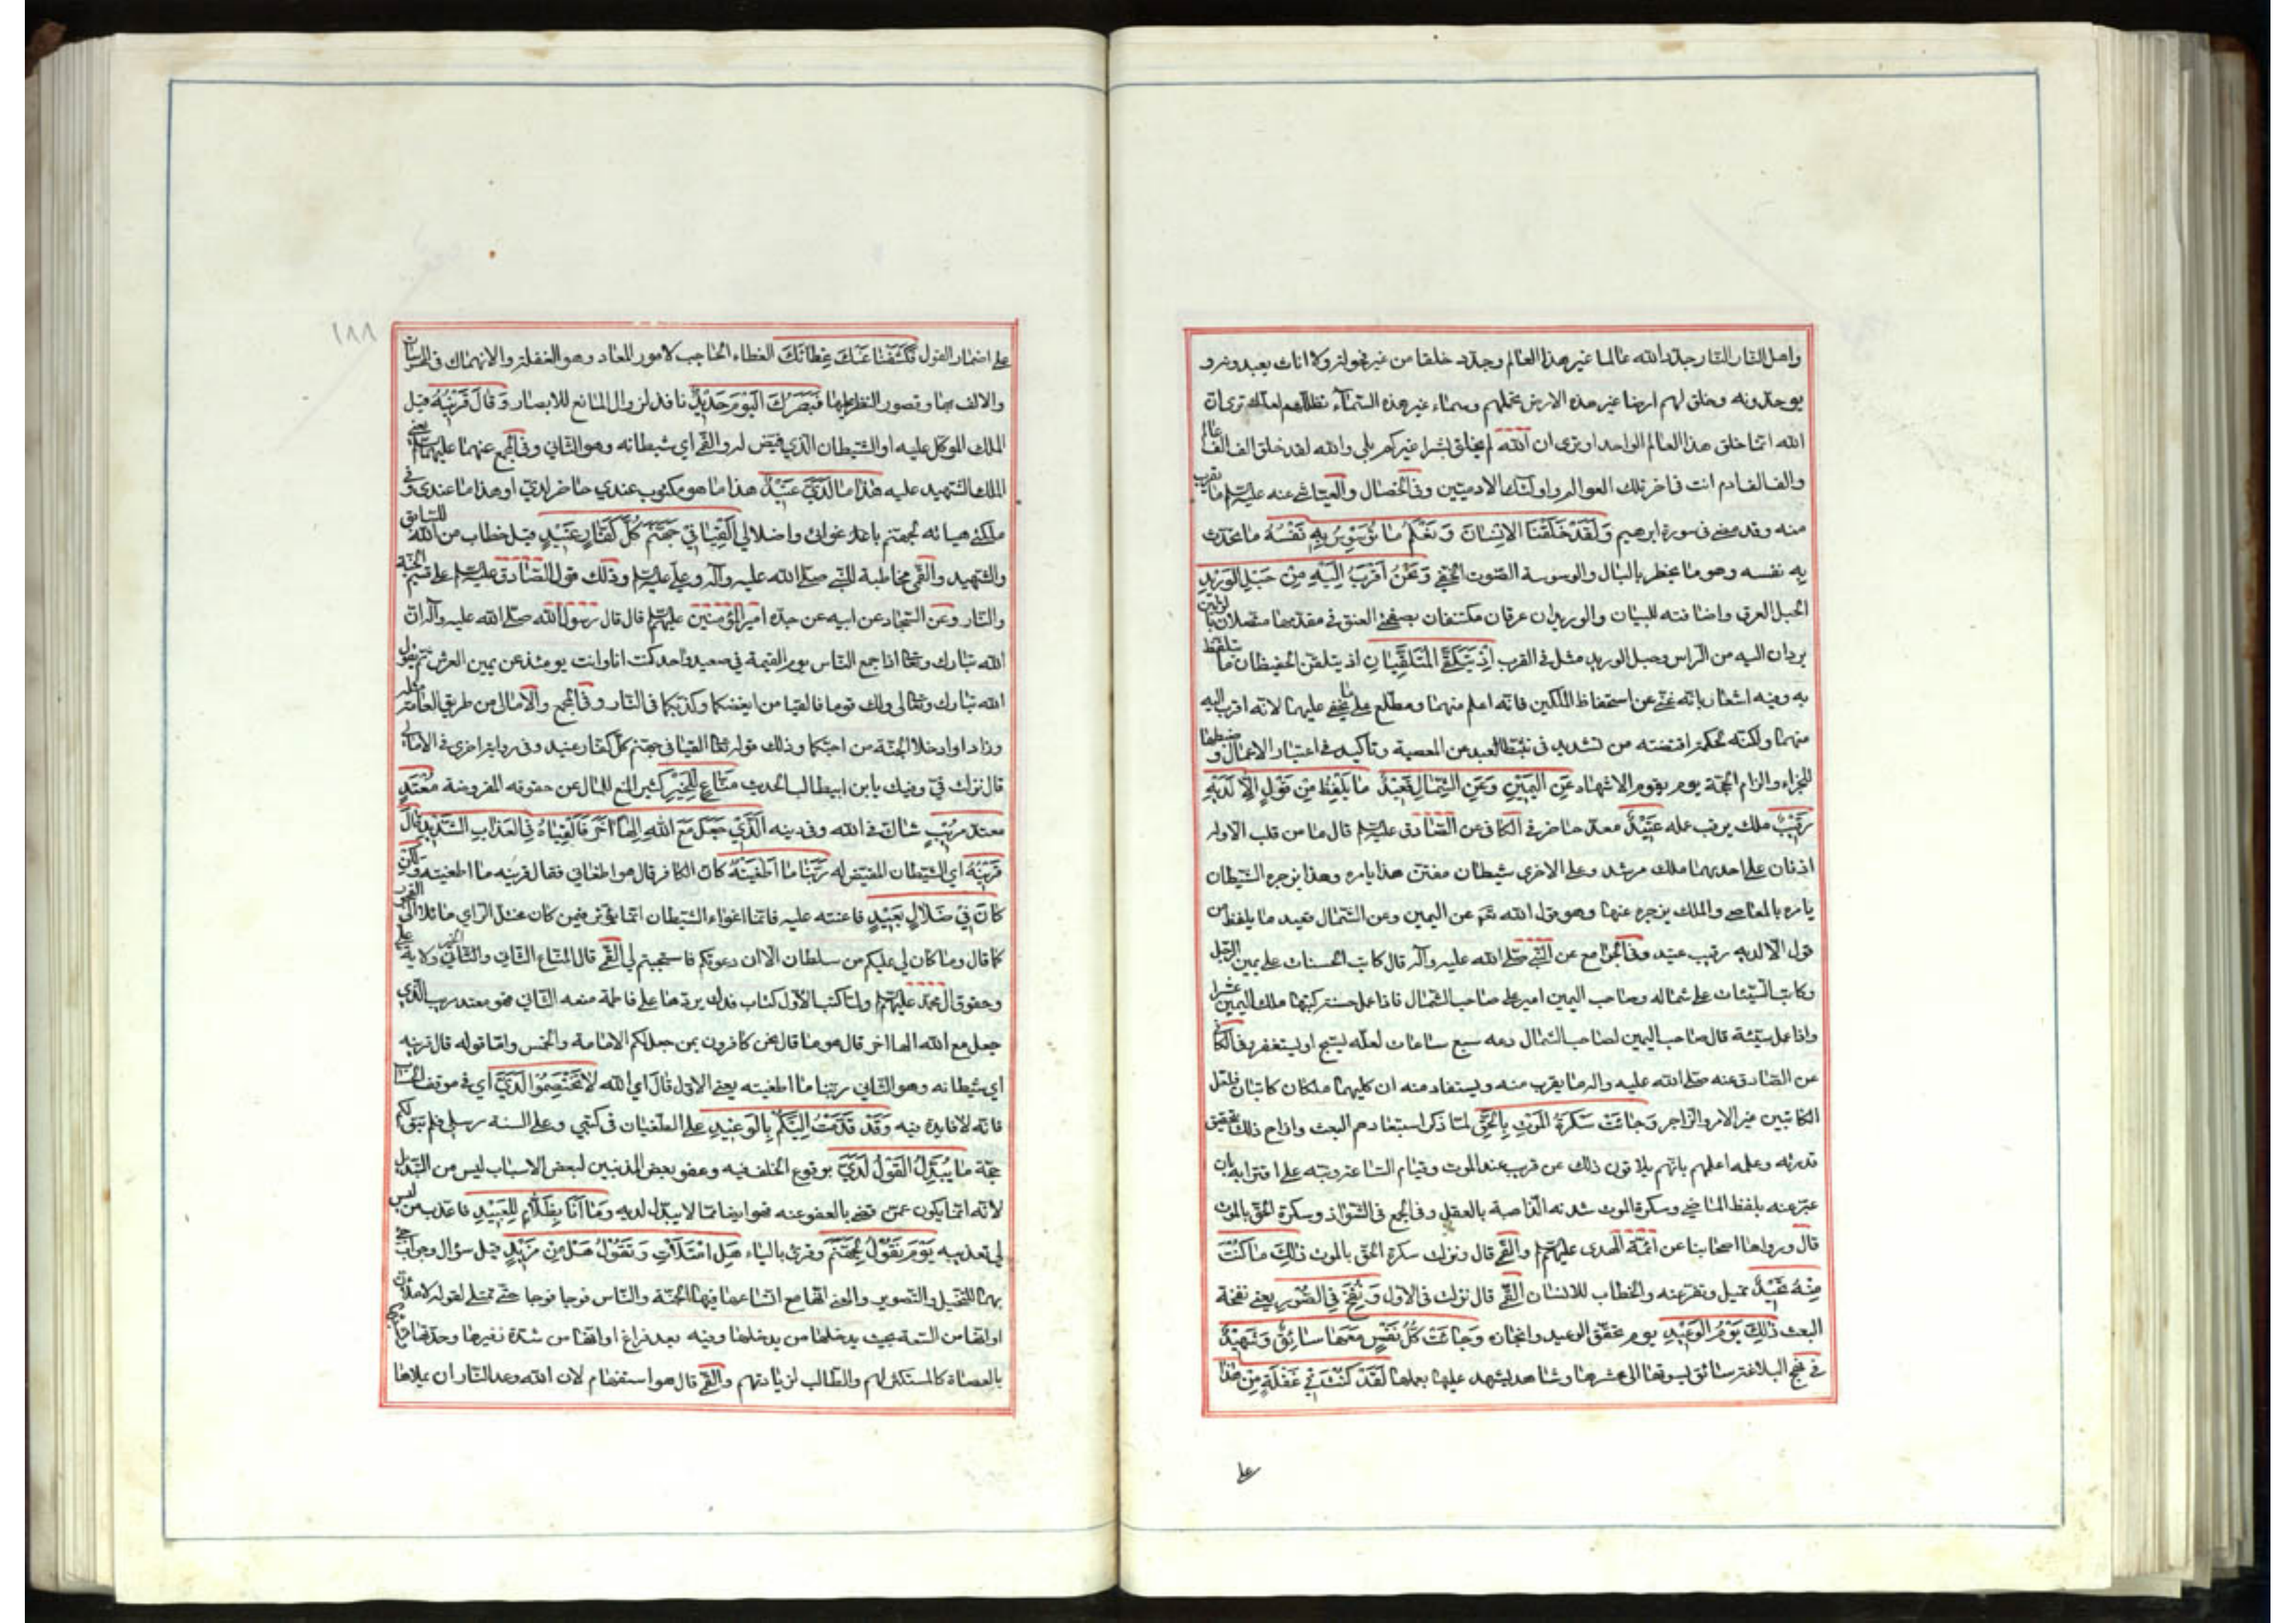 واهل النار النار جدد الله عالما غير هذا العالم وجدد خلقا من غير فحولة ولا اناث يعبدونه و
يوحدونه وخلق لهم ارضا غير هذه الارض تحملهم وسماء غير هذه السماء تظلهم لعلك ترى ان
الله انما خلق هذا العالم الواحد او ترى ان الله لم يخلق بشرا غيركم بلى والله لقد خلق الف الف عالم
والف الف ادم انت في اخر تلك العوالم واولئك الادميين وفي الخصال والعياشي عنه عليه السلم ما يقرب
منه وقد مضى في سورة ابرهيم وَلَقَدْ خَلَقْنَا الْاِنْسَانَ وَنَعْلَمُ مَا تُوَسْوِسُ بِهِ نَفْسُهُ ما تحدث
به نفسه وهو ما يخطر بالبال والوسوسة الصوت الخفي وَنَحْنُ اَقْرَبُ اِلَيْهِ مِنْ حَبْلِ الْوَرِيدِ
الحبل العرق واضافته للبيان والوريدان عرقان مكتنفان بصفحتي العنق في مقدمها متصلان بالوتين
يردان اليه من الراس وحبل الوريد مثل في القرب اِذْ يَتَلَقَّى الْمُتَلَقِّيَانِ اذ يتلقن الحفيظان ما يتلفظ
به وفيه اشعار بانه غني عن استحفاظ الملكين فانه اعلم منهما ومطلع على ما يخفى عليهما لانه اقرب اليه
منهما ولكنه لحكمة اقتضته من تشديد في تثبط العبد من المعصية وتاكيد في اعتبار الاعمال و ضبطها
للجزاء والزام الحجة يوم يقوم الاشهاد عَنِ الْيَمِينِ وَعَنِ الشِّمَالِ قَعِيدٌ مَا يَلْفِظُ مِنْ قَوْلٍ اِلَّا لَدَيْهِ
رَقِيبٌ ملك يرقب عمله عَتِيدٌ معد حاضر في الكافي عن الصادق عليه السلم قال ما من قلب الا وله
اذنان على احديهما ملك مرشد وعلى الاخرى شيطان مفتن هذا يامره وهذا يزجره الشيطان
يامره بالمعاصي والملك يزجره عنها وهو قول الله تعم عن اليمين وعن الشمال قعيد ما يلفظ من
قول الا لديه رقيب عتيد وفي الجوامع عن النبي صلى الله عليه وآله قال كاتب الحسنات على يمين الرجل
وكاتب السيئات على شماله وصاحب اليمين امير على صاحب الشمال فاذا عمل حسنة كتبها ملك اليمين عشرا
واذا عمل سيئة قال صاحب اليمين لصاحب الشمال دعه سبع ساعات لعله يسبح او يستغفر وفي الكافي
عن الصادق عنه صلى الله عليه وآله ما يقرب منه ويستفاد منه ان كليهما ملكان كاتبان فلعل
الكاتبين غير الامر والزاجر وَجَاءَتْ سَكْرَةُ الْمَوْتِ بِالْحَقِّ لما ذكر استبعادهم البعث وازاح ذلك بتحقيق
قدرته وعلمه اعلمهم بانهم يلاقون ذلك عن قريب عند الموت وقيام الساعة ونبه على اقترابه بان
عبر عنه بلفظ الماضي وسكرة الموت شدته الذاهبة بالعقل وفي المجمع في الشواذ وسكرة الحق بالموت
قال ورواها اصحابنا عن ائمة الهدى عليهم السلم والقمي قال ونزلت سكرة الحق بالموت ذٰلِكَ مَا كُنْتَ
مِنْهُ تَحِيدُ تميل وتفر عنه والخطاب للانسان القمي قال نزلت في الاول وَنُفِخَ فِي الصُّورِ يعني نفخة
البعث ذٰلِكَ يَوْمُ الْوَعِيدِ يوم تحقق الوعيد وانجازه وَجَاءَتْ كُلُّ نَفْسٍ مَعَهَا سَائِقٌ وَشَهِيدٌ
في نهج البلاغة سائق يسوقها الى محشرها وشاهد يشهد عليها بعملها لَقَدْ كُنْتَ فِي غَفْلَةٍ مِنْ هٰذَا
على
١٨٨
على اضمار القول فَكَشَفْنَا عَنْكَ غِطَاءَكَ الغطاء الحاجب لامور المعاد وهو الغفلة والانهماك في المحسوسات
والالف بها وقصور النظر عليها فَبَصَرُكَ الْيَوْمَ حَدِيدٌ نافذ لزوال المانع للابصار وَقَالَ قَرِينُهُ قيل
الملك الموكل عليه او الشيطان الذي قيض له والقمي اي شيطانه وهو الثاني وفي المجمع عنهما عليهما السلم يعني
الملك الشهيد عليه هٰذَا مَا لَدَيَّ عَتِيدٌ هذا ما هو مكتوب عندي حاضر لدي او هذا ما عندي و في
ملكتي هياته لجهنم باغوائي واضلالي اَلْقِيَا فِي جَهَنَّمَ كُلَّ كَفَّارٍ عَنِيدٍ قيل خطاب من الله للسائق
والشهيد والقمي مخاطبة للنبي صلى الله عليه وآله وعلي عليه السلم وذلك قول الصادق عليه السلم علي قسيم الجنة
والنار وعن السجاد عن ابيه عن جده امير المؤمنين عليهم السلم قال قال رسول الله صلى الله عليه وآله ان
الله تبارك وتعالى اذا جمع الناس يوم القيمة في صعيد واحد كنت انا وانت يومئذ عن يمين العرش ثم يقول
الله تبارك وتعالى لي ولك قوما فالقيا من ابغضكما وكذبكما في النار وفي المجمع والامالي من طريق العامة مثله
وزاد وادخلا الجنة من احبكما وذلك قوله تعالى القيا في جهنم كل كفار عنيد وفي رواية اخرى في الامالي
قال نزلت في وفيك يابن ابيطالب الحديث مَنَّاعٍ لِلْخَيْرِ كثير المنع للمال عن حقوقه المفروضة مُعْتَدٍ
معتد مُرِيبٍ شاك في الله وفي دينه اَلَّذِي جَعَلَ مَعَ اللهِ اِلٰهًا اٰخَرَ فَاَلْقِيَاهُ فِي الْعَذَابِ الشَّدِيدِ قَالَ
قَرِينُهُ اي الشيطان المقيض له رَبَّنَا مَا اَطْغَيْتُهُ كان الكافر قال هو اطغاني فقال قرينه ما اطغيته وَلٰكِنْ
كَانَ فِي ضَلَالٍ بَعِيدٍ فاعنته عليه فانما اغواء الشيطان انما يؤثر فيمن كان مختل الراي مائلا الى الفجور
كما قال وما كان لي عليكم من سلطان الا ان دعوتكم فاستجبتم لي القمي قال المناع الثاني والخير ولاية علي
وحقوق ال محمد عليهم السلم ولما كتب الاول كتاب فدك يردها على فاطمة منعه الثاني فهو معتد مريب الذي
جعل مع الله الها اخر قال هو ما قال نحن كافرون بمن جعل لكم الامامة والخمس واما قوله قال قرينه
اي شيطانه وهو الثاني ربنا ما اطغيته يعني الاول قَالَ اي الله لَا تَخْتَصِمُوا لَدَيَّ اي في موقف الحساب
فانه لا فايدة فيه وَقَدْ قَدَّمْتُ اِلَيْكُمْ بِالْوَعِيدِ على الطغيان في كتبي وعلى السنة رسلي فلم تبق لكم
حجة مَا يُبَدَّلُ الْقَوْلُ لَدَيَّ بوقوع الخلف فيه وعفو بعض المذنبين لبعض الاسباب ليس من التبديل
لانه انما يكون عمن قضى بالعفو عنه فهو ايضا مما لا يبدل لديه وَمَا اَنَا بِظَلَّامٍ لِلْعَبِيدِ فاعذب من ليس
لي تعذيبه يَوْمَ نَقُولُ لِجَهَنَّمَ وقرئ بالياء هَلِ امْتَلَأْتِ وَتَقُولُ هَلْ مِنْ مَزِيدٍ قيل سؤال وجواب جئ
بهما للتخييل والتصوير والمعنى انها مع اتساعها فيها الجنة والناس فوجا فوجا حتى تمتلي لقوله لاملان جهنم
او انها من السعة بحيث يدخلها من يدخلها وفيه بعد فراغ او انها من شدة زفيرها وحدتها وتشبثها
بالعصاة كالمستكثر لهم والطالب لزيادتهم والقمي قال هو استفهام لان الله وعد النار ان يملاها